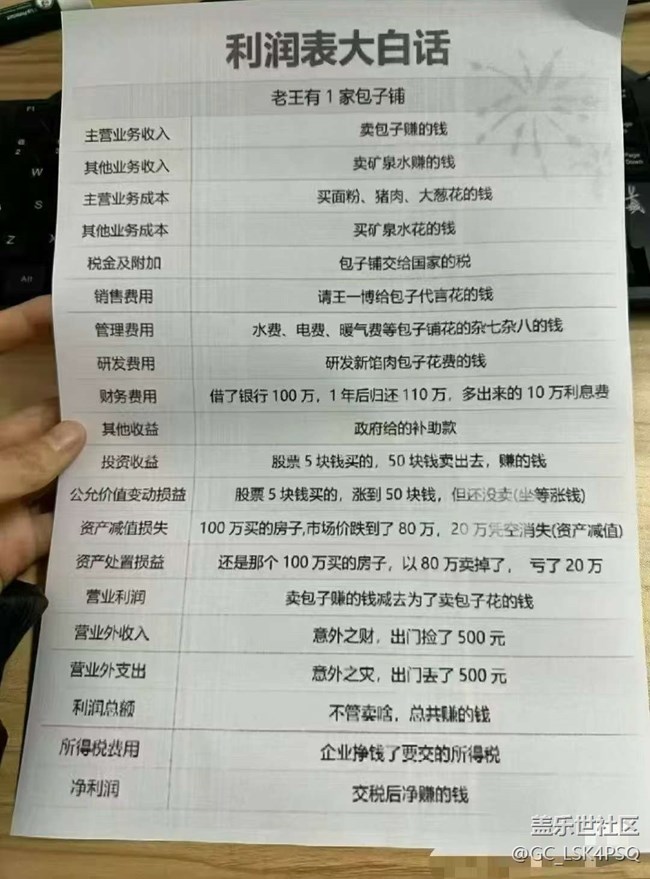 利润表大白话
老王有1家包子铺
主营业务收入 卖包子赚的钱
其他业务收入 卖矿泉水赚的钱
主营业务成本 买面粉、猪肉、大葱花的钱
其他业务成本 买矿泉水花的钱
税金及附加 包子铺交给国家的税
销售费用 请王一博给包子代言花的钱
管理费用 水费、电费、暖气费等包子铺花的杂七杂八的钱
研发费用 研发新馅肉包子花费的钱
财务费用 借了银行100万，1年后归还110万，多出来的10万利息费
其他收益 政府给的补助款
投资收益 股票5块钱买的，50块钱卖出去，赚的钱
公允价值变动损益 股票5块钱买的，涨到50块钱，但还没卖(坐等涨钱)
资产减值损失 100万买的房子,市场价跌到了80万，20万凭空消失(资产减值)
资产处置损益 还是那个100万买的房子，以80万卖掉了， 亏了20万
营业利润 卖包子赚的钱减去为了卖包子花的钱
营业外收入 意外之财，出门捡了500元
营业外支出 意外之灾，出门丢了500元
利润总额 不管卖啥，总共赚的钱
所得税费用 企业挣钱了要交的所得税
净利润 交税后净赚的钱
盖乐世社区
@GC_LSK4PSQ